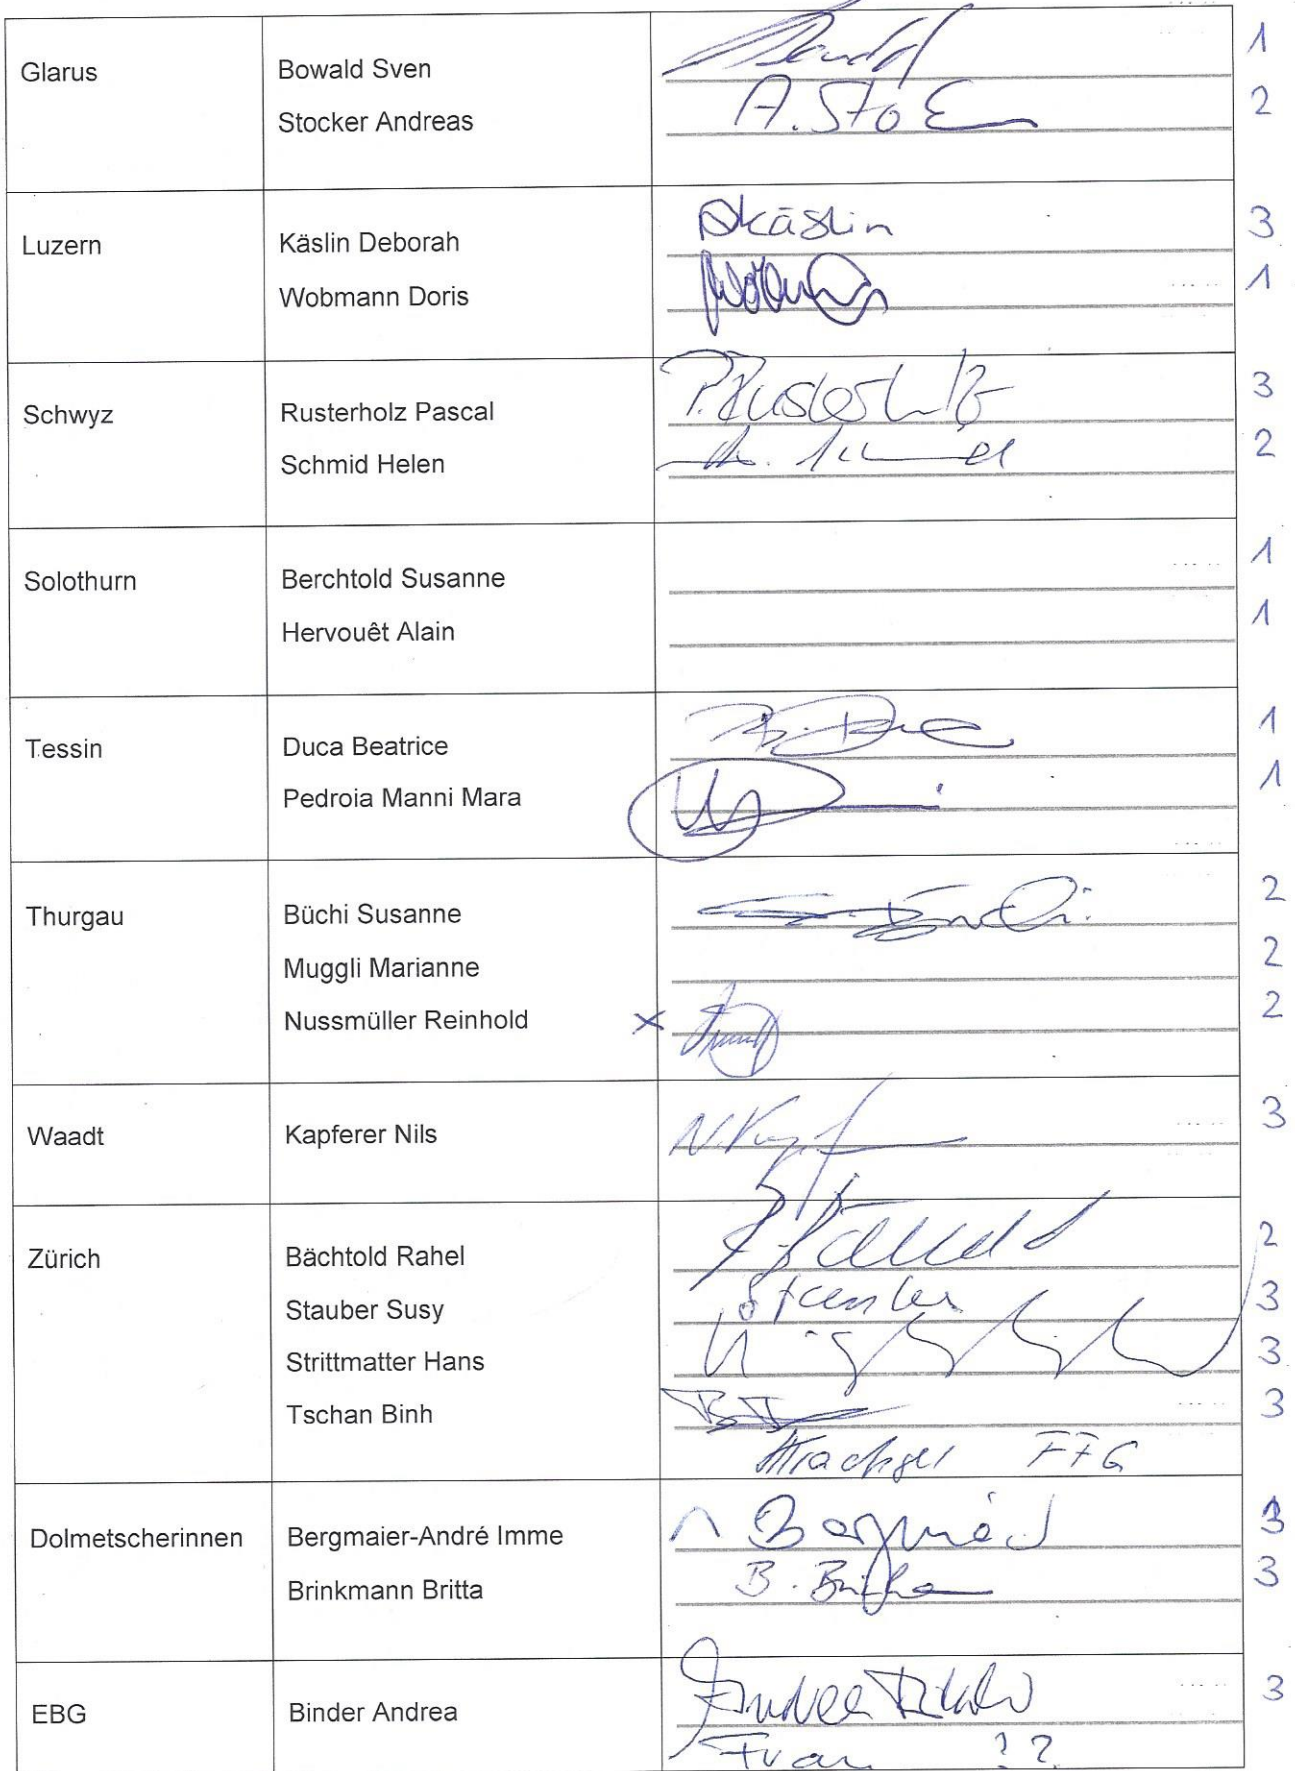 Glarus Bowald Sven 1
Stocker Andreas A. Sto 2
Luzern Käslin Deborah DKäslin 3
Wobmann Doris 1
Schwyz Rusterholz Pascal P. Rusterholz 3
Schmid Helen 2
Solothurn Berchtold Susanne 1
Hervouêt Alain 1
Tessin Duca Beatrice 1
Pedroia Manni Mara 1
Thurgau Büchi Susanne 2
Muggli Marianne 2
Nussmüller Reinhold x 2
Waadt Kapferer Nils 3
Zürich Bächtold Rahel 2
Stauber Susy 3
Strittmatter Hans 3
Tschan Binh 3
FFG
Dolmetscherinnen Bergmaier-André Imme 3
Brinkmann Britta 3
EBG Binder Andrea Andrea 3
Frau ??